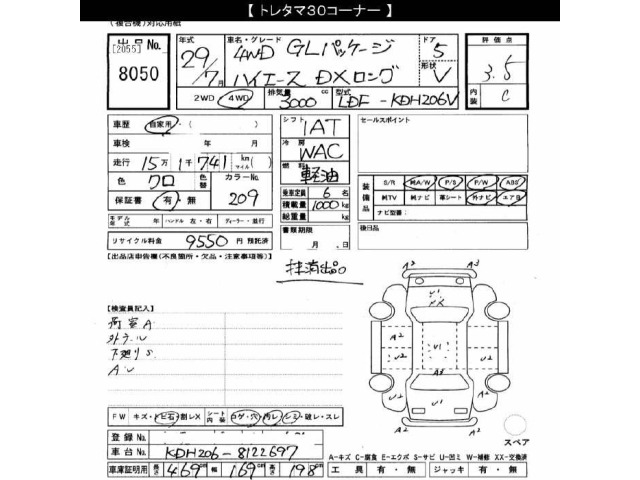 【 トレタマ30コーナー 】
(複合機)対応用紙
出品No.
[2055]
8050
年式 29年/7月
車名・グレード 4WD GLパッケージ
ハイエース DXロング
ドア 5
形状 V
評価点 3.5
内装 C
2WD 4WD
排気量 3000 cc
型式 LDF-KDH206V
車歴 自家用・( )
車検 年 月
走行 15万 1千 741 km マイル ( )
色 クロ 色替 カラーNo. 209
保証書 有・無
モデル年式 年 ハンドル 左・右 ディーラー・並行
リサイクル料金 9550 円 預託済
シフト IAT
冷房 WAC
燃料 軽油
乗車定員 6 名
積載量 1000 kg
総重量 kg
書類期限 月 日
セールスポイント
装備品 S/R 純A/W P/S P/W ABS
純TV 純ナビ 革シート 外ナビ エアB
ナビ型番:
後日品
【出品店申告欄(不良箇所・欠品・注意事項等)】
抹消出品
【検査員記入】
荷室A
外ナル
下廻りS
AU
FW キズ・トビ石・割レX シート内装 コゲ・穴・汚レ・シミ・破レ・スレ
登録No.
車台No. KDH206-8122697
車庫証明用 長さ 469 cm 幅 169 cm 高さ 198 cm
A3 A3
U1
XX
A2 U2 U1 U2 A2
A3
U1
A2 U2
A2 U2
スペア
A-キズ C-腐食 E-エクボ S-サビ U-凹ミ W-補修 XX-交換済
工具 有・無 ジャッキ 有・無